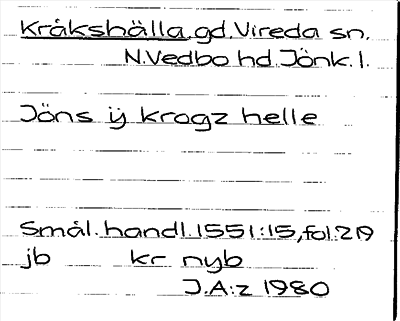 Kråkshälla, gd. Vireda sn.
N.Vedbo hd. Jönk. l.
Jöns ÿ kragz helle
Smål. handl. 1551:15, fol. 219
jb kr nyb
J.A:z 1980